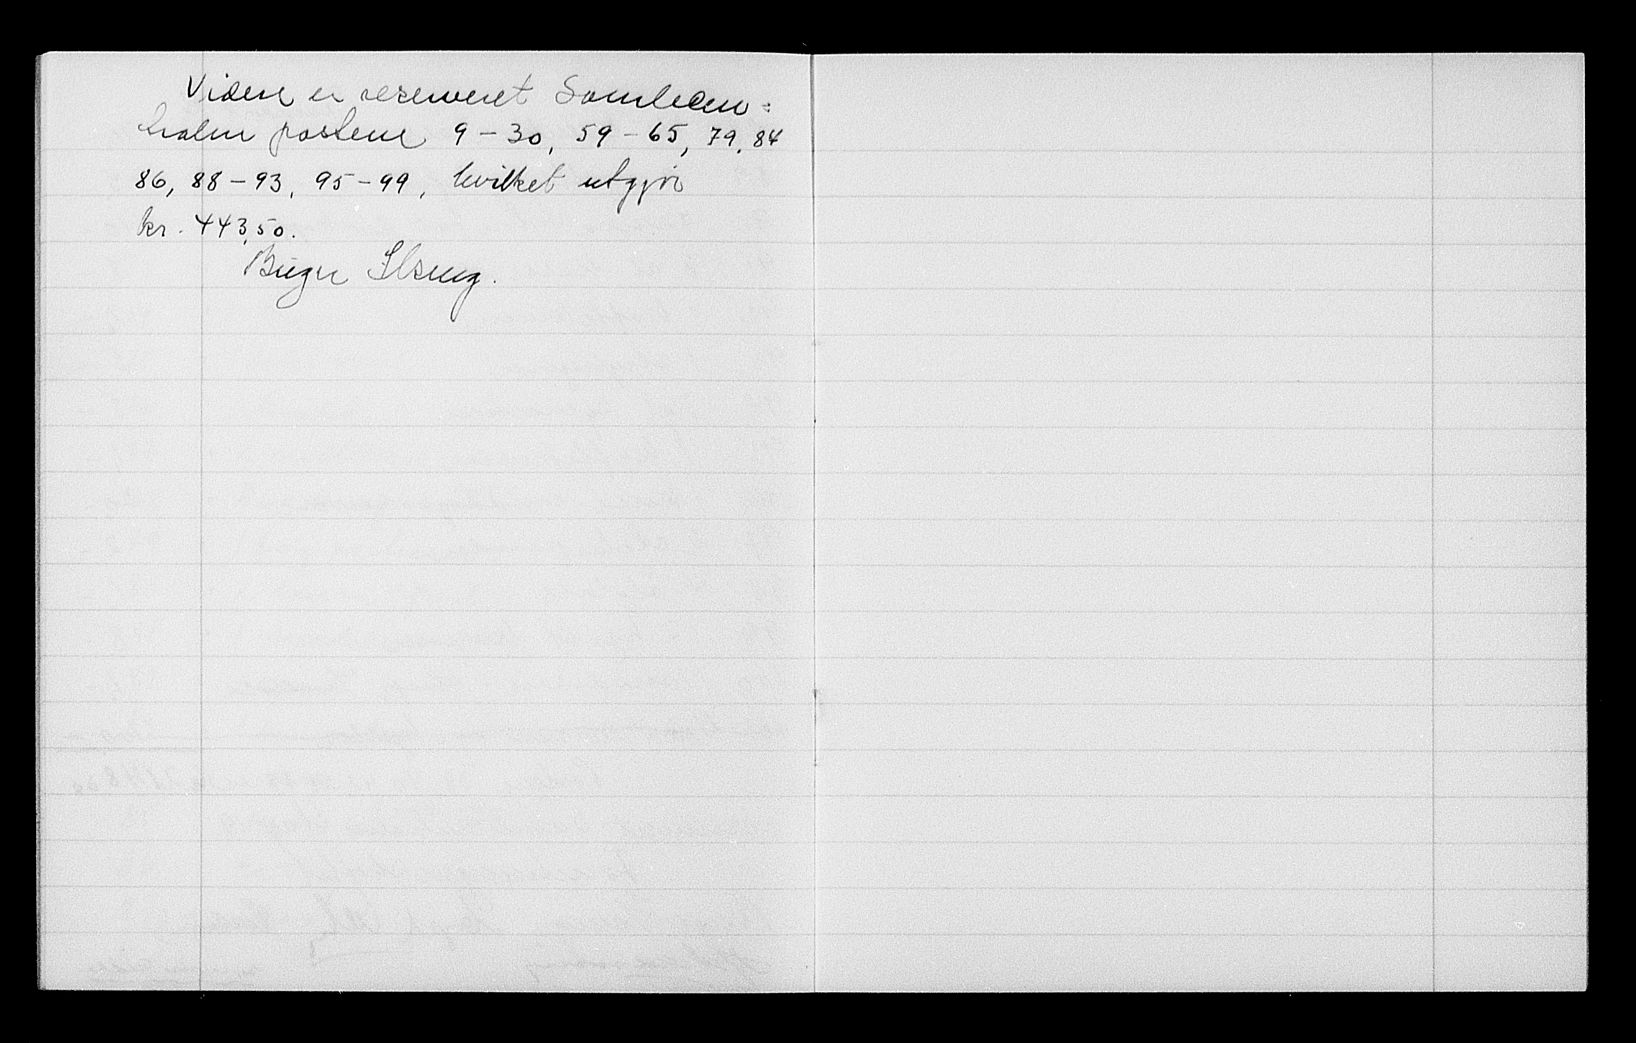 Videre er reserveret Samlaren =
holm postene 9 – 30, 59 – 65, 79, 84
86, 88 – 93, 95 – 99, hvilket utgjør
kr. 443,50.
Birger